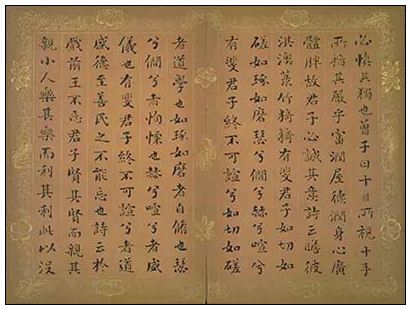 必慎其獨也曾子曰十目所視十手
所指其嚴乎富潤屋德潤身心廣
體胖故君子必誠其意詩云瞻彼
淇澳菉竹猗猗有斐君子如切如
磋如琢如磨瑟兮僩兮赫兮喧兮
有斐君子終不可諠兮如切如磋
者道學也如琢如磨者自脩也瑟
兮僩兮者恂慄也赫兮喧兮者威
儀也有斐君子終不可諠兮者道
盛德至善民之不能忘也詩云於
戲前王不忘君子賢其賢而親其
親小人樂其樂而利其利此以沒